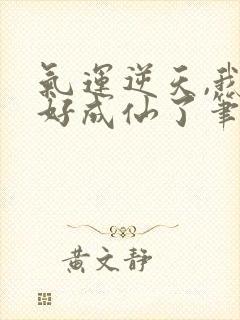 氣運逆天,我
好成仙了筆
黃文靜